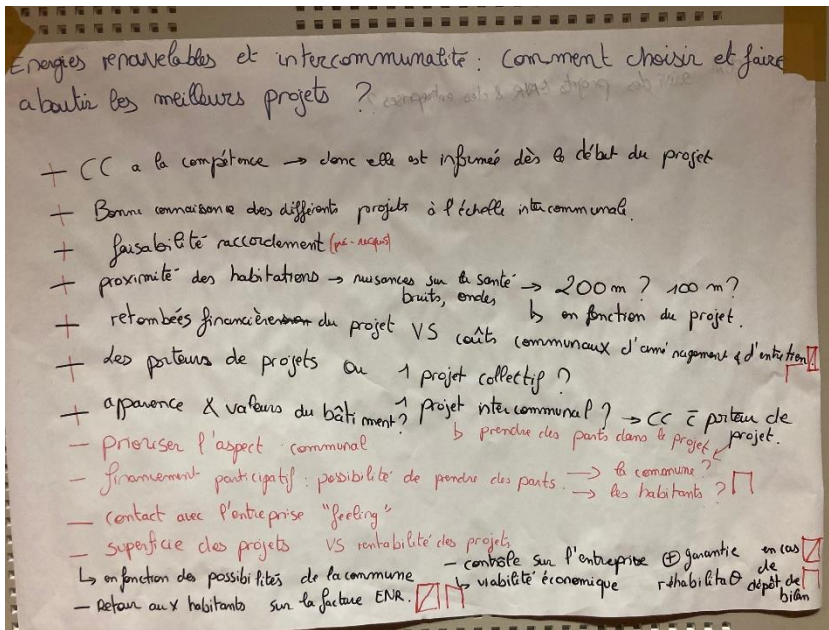 Energies renouvelables et intercommunalité : Comment choisir et faire
aboutir les meilleurs projets ?
+ CC a la compétence → donc elle est informée dès le début du projet
+ Bonne connaissance des différents projets à l'échelle intercommunale.
+ faisabilité raccordement (pré-requis)
+ proximité des habitations → nuisances sur la santé → 200m ? 100m ?
bruits, ondes ↳ en fonction du projet.
+ retombées financières du projet VS coûts communaux d'aménagement & d'entretien
+ des porteurs de projets ou 1 projet collectif ?
+ apparence & valeurs du bâtiment ? 1 projet intercommunal ? → CC c̄ porteur de projet.
- prioriser l'aspect communal ↳ prendre des parts dans le projet
- financement participatif : possibilité de prendre des parts. → la commune ?
→ les habitants ?
- contact avec l'entreprise "feeling"
- superficie des projets VS rentabilité des projets
↳ en fonction des possibilités de la commune
- Retour aux habitants sur la facture ENR.
- contrôle sur l'entreprise ⊕ garantie en cas de dépôt de bilan
↳ viabilité économique réhabilitaθ